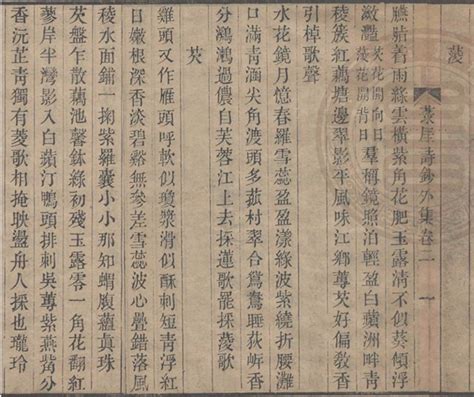 菱
厓詩鈔外集卷二　一
臙脂着雨綠雲橫紫角花肥玉露清不似葵傾浮
瀲灩芡花開向日菱花開背日羣稱鏡照泊輕盈白蘋洲畔靑
稜簇紅藕塘邊翠影平風味江鄉蓴芡好偏教香
引棹歌聲
水花鏡月憶春羅雪蕊盈盈漾綠波紫繞折腰灘
口滿靑涵尖角渡頭多菰村翠合鴛鴦睡荻㟁香
分過儂自芙蓉江上去採蓮歌罷採菱歌
芡
雞頭又作雁頭呼軟似瓊漿滑似酥刺短靑浮紅
日嫩根深香淡碧谿無參差雪蕊波心疊錯落風
稜水面鋪一掬紫羅囊小小那知蝟腹蘊眞珠
芡盤乍散藕池馨鉢綠初殘玉露零一角花翻紅
蓼岸半灣影入白蘋汀鴨頭排刺吳蓴紫燕觜分
香沅芷靑獨有菱歌相掩映盪舟人採也瓏玲